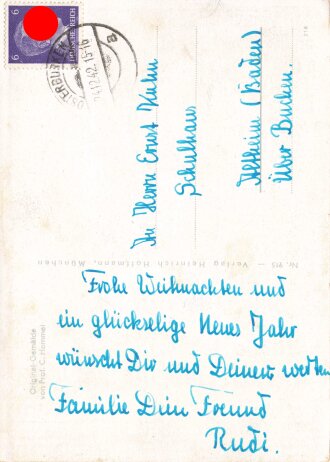 6 DEUTSCHES REICH 6
14.12.42.15-16
B
An Herrn Ernst Kuhn
Schulhaus
Altheim (Baden)
Über Buchen.
Nr. 915 — Verlag Heinrich Hoffmann, München
Original-Gemälde
von Prof. C. Hommel
Frohe Weihnachten und
ein glückseliges Neues Jahr
wünscht Dir und Deiner werten
Familie Dein Freund
Rudi.